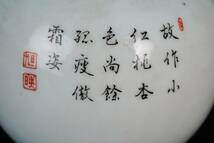 故作小
红桃杏
色尚餘
孤瘦傲
霜姿